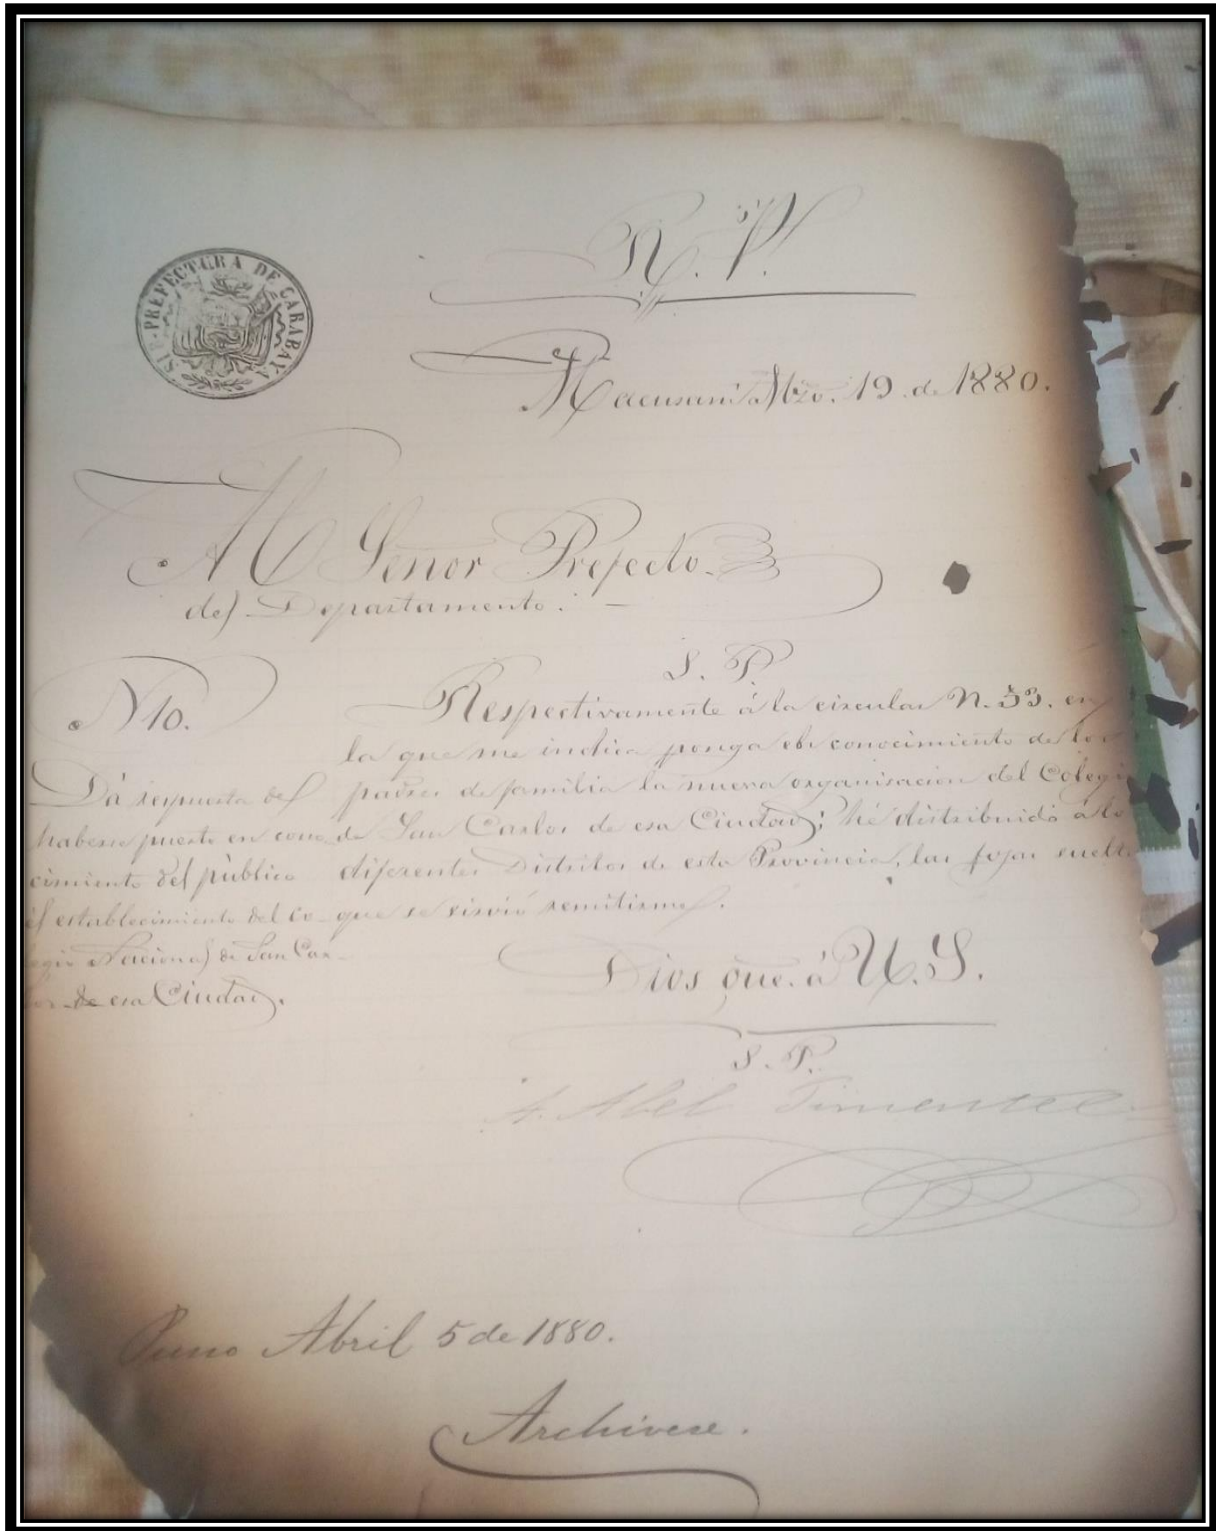 SUB-PREFECTURA DE CARABAYA
R. P.
Macusani Mzo. 19 de 1880.
Al Señor Prefecto
del Departamento.
S. P.
N 10.
Dá respuesta del
haberse puesto en cono-
cimiento del público
el establecimiento del co-
egio Nacional de San Car-
los de esa Ciudad.
Respectivamente á la circular N. 53. en
la que me indica ponga en conocimiento de los
padres de familia la nueva organisacion del Colegi
de San Carlos de esa Ciudad; hé distribuido a lo
diferentes Distritos de esta Provincia, las fojas suelt
que se sirvió remitirme.
Dios gue. á U.S.
S. P.
A. Abel Pimentel
Puno Abril 5 de 1880.
Archivese.